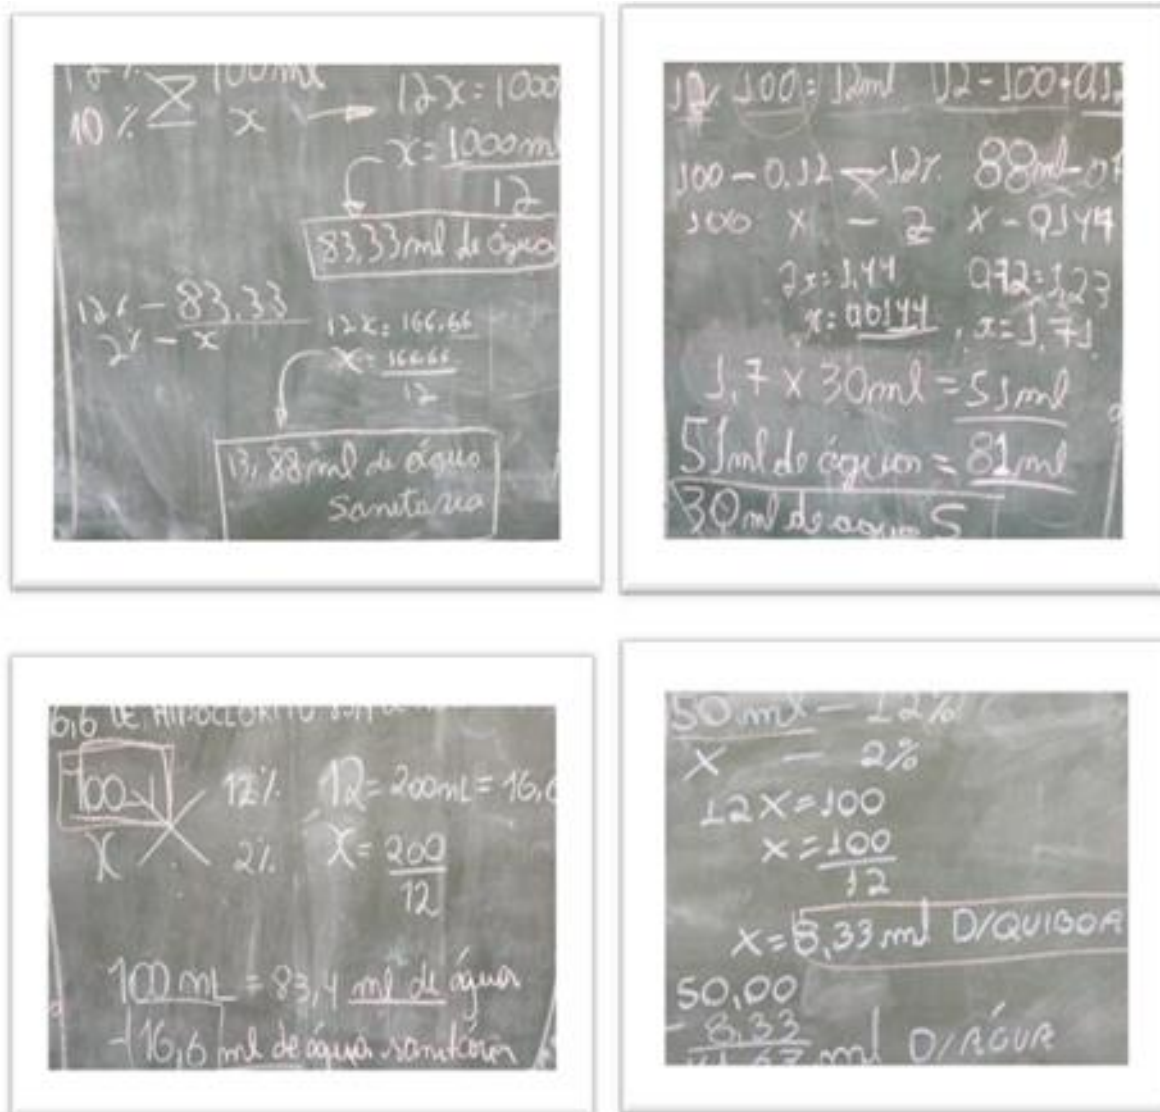 12% 100ml
10% x → 12x = 1000
x = 1000m
12
83,33ml de água
12% - 83,33
2% - x
12x = 166,66
x = 166,66
12
13,88ml de água
sanitárea
12% 100 = 12ml 12-100=0,12
100 - 0,12 - 12% 88ml - 0,1
100 x - 2 x - 0,144
2x = 1,44 0,72 = 1,23
x = 0,0144, x = 1,71
1,7 x 30ml = 51ml
51ml de água = 81ml
30ml de agua S
6,6 DE HIPOCLORITO
100 12% 12 = 200mL = 16,6
X 2% X = 200
12
100mL = 83,4 ml de água
-16,6 ml de água sanitária
50ml - 12%
X - 2%
12X = 100
X = 100
12
X = 8,33 ml D/QUIBOA
50,00
- 8,33
41,67 ml D/ÁGUA